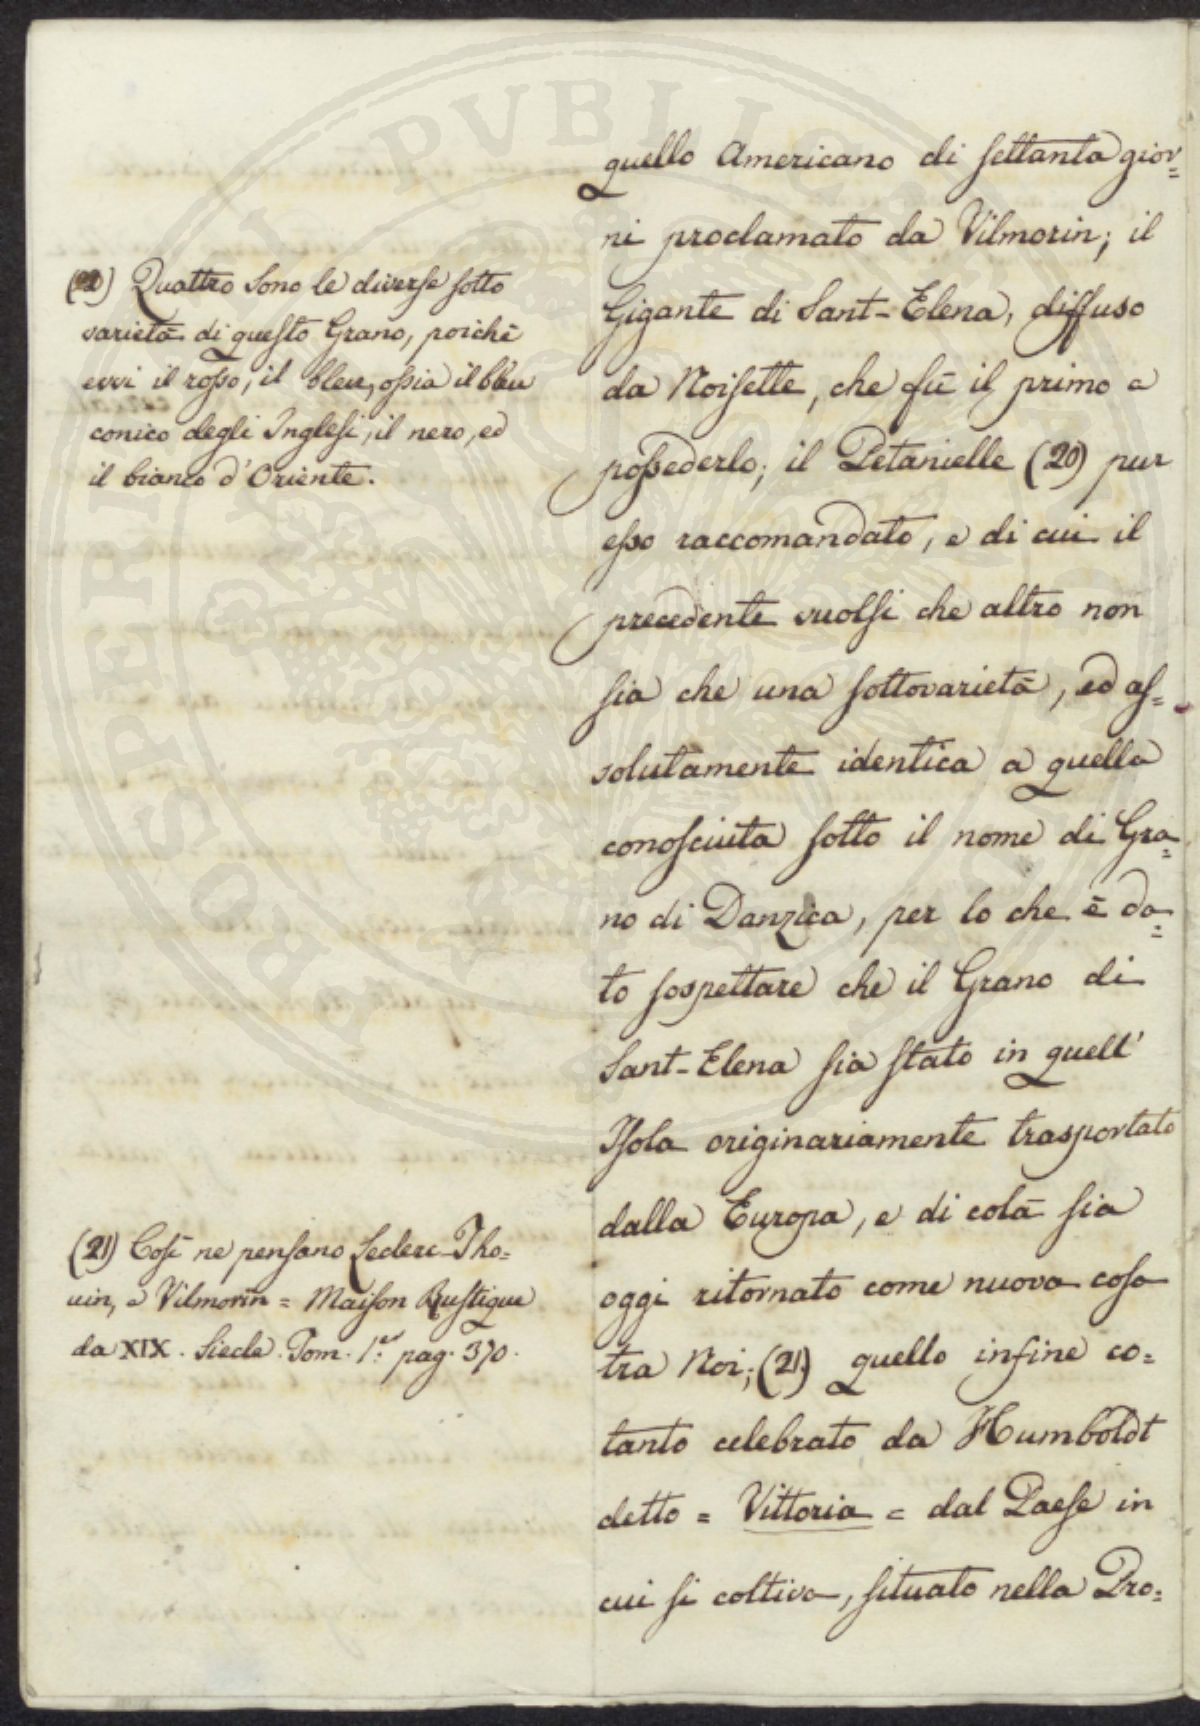 quello Americano di settanta gior=
ni proclamato da Vilmorin; il
Gigante di Sant-Elena, diffuso
da Noisette, che fù il primo a
possederlo; il Petanielle (20) pur
esso raccomandato, e di cui il
precedente vuolsi che altro non
sia che una sottovarietà, ed as=
solutamente identica a quella
conosciuta sotto il nome di Gra=
no di Danzica, per lo che è da=
to sospettare che il Grano di
Sant-Elena sia stato in quell'
Isola originariamente trasportato
dalla Europa, e di colà sia
oggi ritornato come nuova cosa
tra Noi; (21) quello infine co=
tanto celebrato da Humboldt
detto = Vittoria = dal Paese in
cui si coltiva, situato nella Pro=
(20) Quattro sono le diverse sotto
varietà di questo Grano, poichè
evvi il rosso, il bleu, ossia il bleu
conico degli Inglesi, il nero, ed
il bianco d'Oriente.
(21) Così ne pensano Leclerc-Tho=
uin, e Vilmorin = Maison Rustique
da XIX. Siecle. Tom. 1.er pag. 370.
PROSPERITATI PUBLICAE